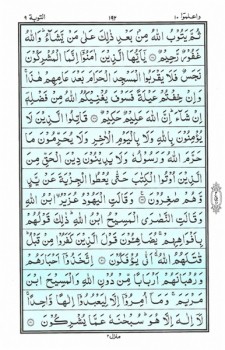 واعلموا ١٠ ١٩٢ التوبة ٩
ثُمَّ يَتُوبُ اللّٰهُ مِنْۢ بَعْدِ ذٰلِكَ عَلٰى مَنْ يَّشَآءُ وَاللّٰهُ
غَفُوْرٌ رَّحِيْمٌ يٰۤاَيُّهَا الَّذِيْنَ اٰمَنُوْۤا اِنَّمَا الْمُشْرِكُوْنَ
نَجَسٌ فَلَا يَقْرَبُوا الْمَسْجِدَ الْحَرَامَ بَعْدَ عَامِهِمْ هٰذَا
وَاِنْ خِفْتُمْ عَيْلَةً فَسَوْفَ يُغْنِيْكُمُ اللّٰهُ مِنْ فَضْلِهٖۤ
اِنْ شَآءَ اِنَّ اللّٰهَ عَلِيْمٌ حَكِيْمٌ قَاتِلُوا الَّذِيْنَ لَا
يُؤْمِنُوْنَ بِاللّٰهِ وَلَا بِالْيَوْمِ الْاٰخِرِ وَلَا يُحَرِّمُوْنَ مَا
حَرَّمَ اللّٰهُ وَرَسُوْلُهٗ وَلَا يَدِيْنُوْنَ دِيْنَ الْحَقِّ مِنَ
الَّذِيْنَ اُوْتُوا الْكِتٰبَ حَتّٰى يُعْطُوا الْجِزْيَةَ عَنْ يَّدٍ
وَّهُمْ صٰغِرُوْنَ وَقَالَتِ الْيَهُوْدُ عُزَيْرُ ۨابْنُ اللّٰهِ
وَقَالَتِ النَّصٰرَى الْمَسِيْحُ ابْنُ اللّٰهِ ذٰلِكَ قَوْلُهُمْ
بِاَفْوَاهِهِمْ يُضَاهِـُٔوْنَ قَوْلَ الَّذِيْنَ كَفَرُوْا مِنْ قَبْلُ
قٰتَلَهُمُ اللّٰهُ اَنّٰى يُؤْفَكُوْنَ اِتَّخَذُوْۤا اَحْبَارَهُمْ
وَرُهْبَانَهُمْ اَرْبَابًا مِّنْ دُوْنِ اللّٰهِ وَالْمَسِيْحَ ابْنَ
مَرْيَمَ وَمَاۤ اُمِرُوْۤا اِلَّا لِيَعْبُدُوْۤا اِلٰهًا وَّاحِدًا
لَاۤ اِلٰهَ اِلَّا هُوَ سُبْحٰنَهٗ عَمَّا يُشْرِكُوْنَ
منزل ٢